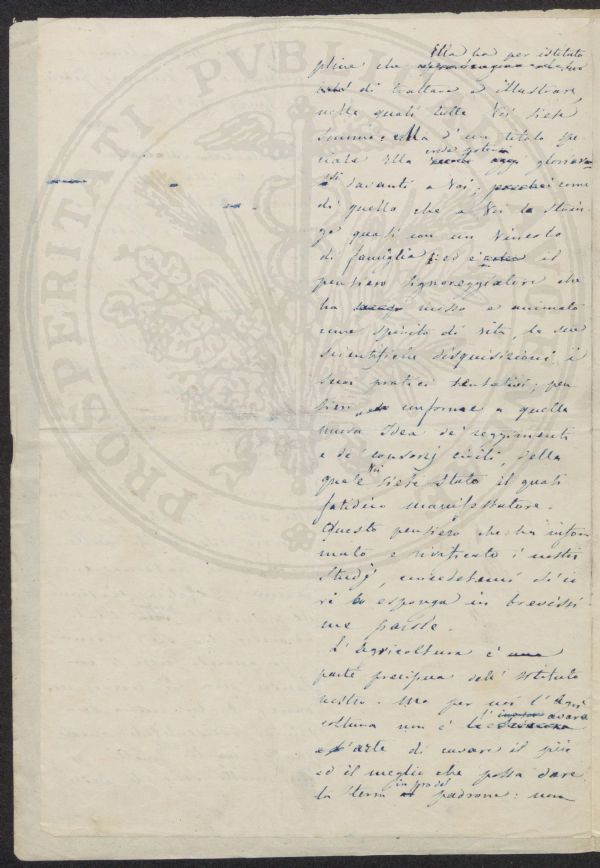 PROSPERITATI PVBLICAE
Ella ha per istituto
pline che
di trattare e illustrare,
nelle quali tutte Voi siete
sommo: ella d'un titolo spe
ciale Ella crede potersi gloriare
davanti a Voi, come
di quello che a Voi la strin
ge quasi con un vincolo
di famiglia: ed è il
pensiero signoreggiatore che
ha mosso e animato
come spirito di vita, le sue
scientifiche disquisizioni i
suoi pratici tentativi; pen
siero conforme a quella
nuova Idea de' reggimenti
e de' consorzj civili, della
quale Voi siete stato il quasi
fatidico manifestatore.
Questo pensiero che ha infor
mato e vivificato i nostri
studj, concedetemi ch'io
vi esponga in brevissi
me parole.
L'Agricoltura è
parte precipua dell'istituto
nostro. Ma per noi l'Agri
coltura non è l'avara
arte di cavare il più
ed il meglio che possa dare
la terra in pro del padrone: non